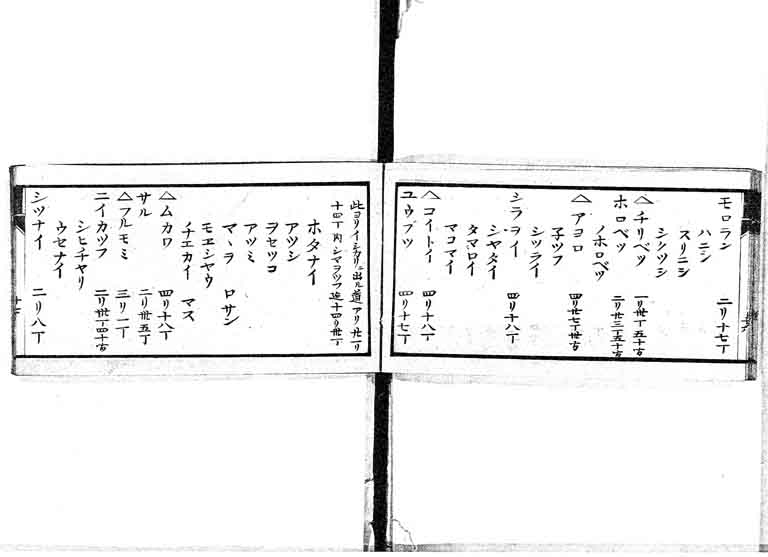 モロラン 二リ十七丁
ハニシ
スリニシ
シノツシ
ヘチリベツ 一リ卅丁五十間
ホロベツ 二リ卅三丁五十間
ノホロベツ
ヘアヨロ 四リ廿七丁廿間
子ツフ
シツライ
シラヲイ 四リ十八丁
シヤタイ
タマロイ
マコマイ
ヘコイトイ 四リ十八丁
ユウブツ 四リ十七丁
此ヨリイシカリニ出ル道アリ廿一リ
十四丁内シマヲツフ迠十四リ卅丁
ホタナイ
アツシ
ヲセツコ
アツミ
マヽヲ ロサン
モエシヤウ
チエカイ マス
ヘムカワ 四リ十八丁
サル 二リ卅五丁
ヘフルモミ 三リ二丁
ニイカツフ 二リ卅一丁四十間
シヒチヤリ
ウセナイ
シツナイ 二リ八丁